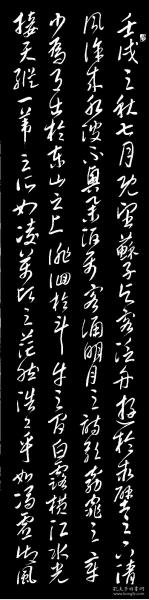 壬戌之秋七月既望蘇子与客泛舟遊於赤壁之下清
風徐来水波不興舉酒属客诵明月之詩歌窈窕之章
少焉月出於東山之上徘徊於斗牛之間白露横江水光
接天縱一葦之所如凌萬頃之茫然浩々乎如馮虚御風